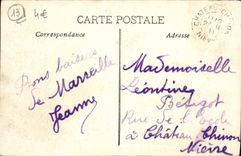 13
4€
CARTE POSTALE
Correspondance
CHATEAU-CHINON
Bons baisers
de Marseille
Jeanne
Mademoiselle
Léontine
Rue de l'
à Château Chinon
Nièvre